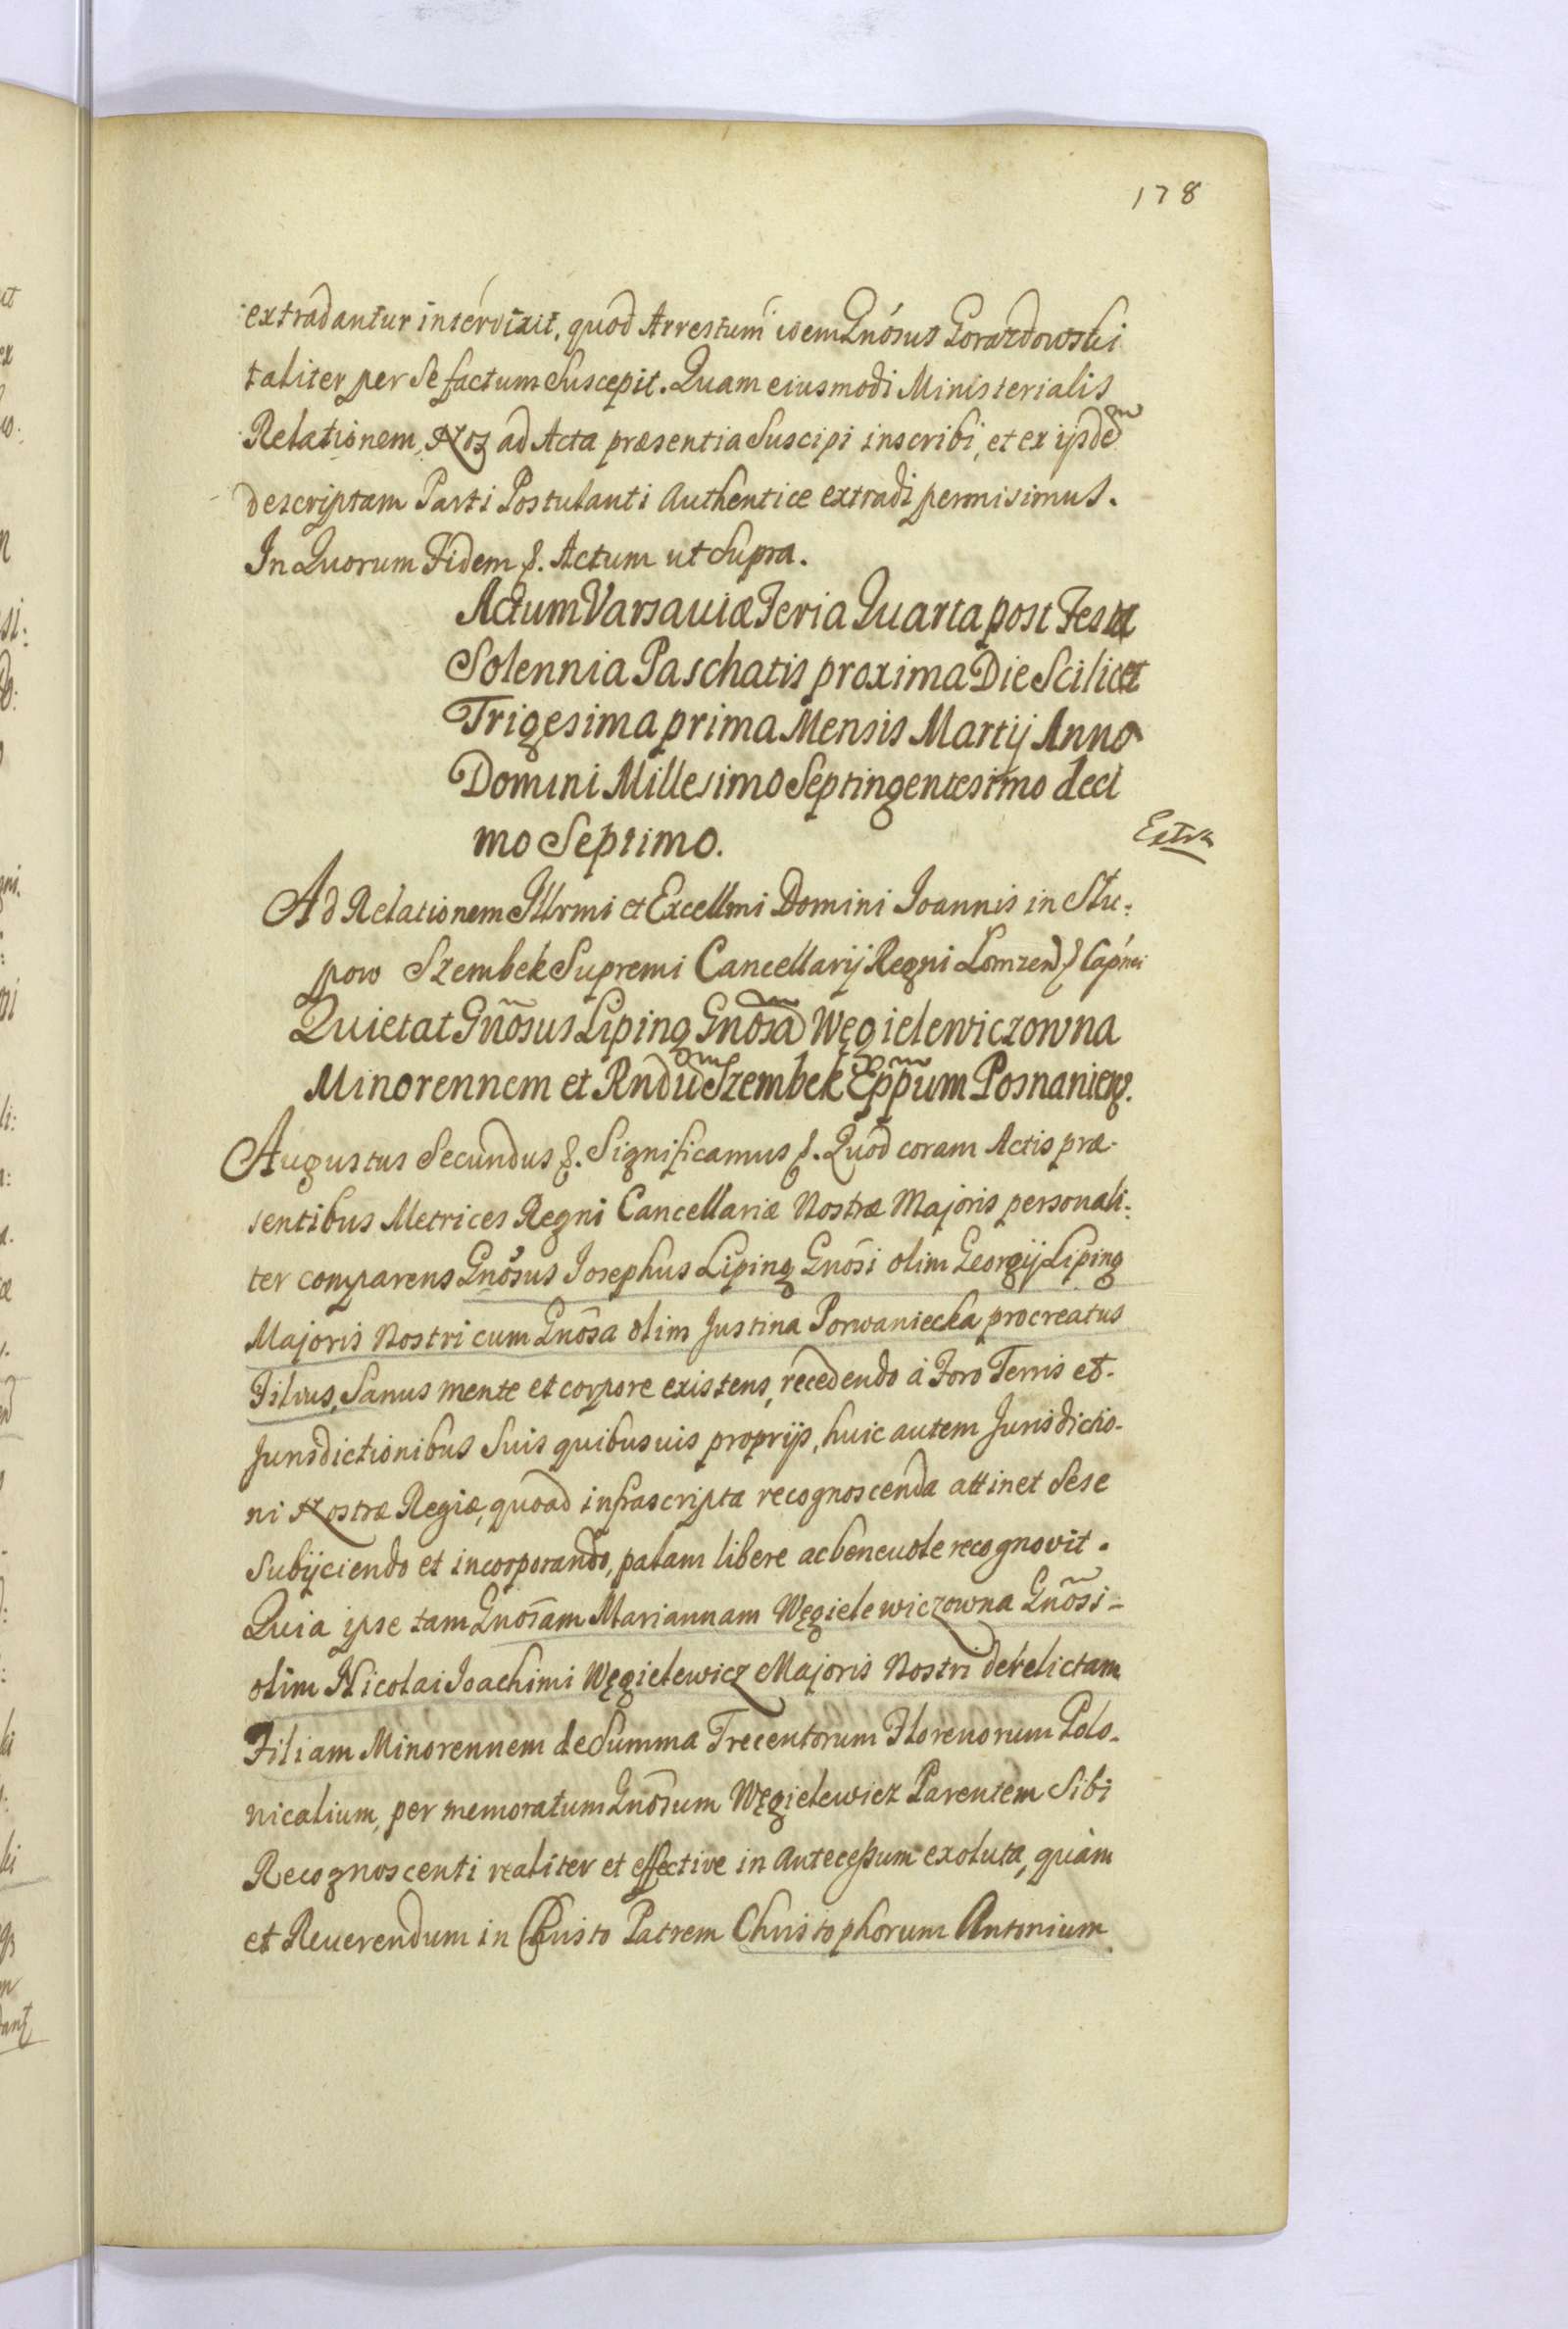 178
extradantur interdixit, quod Arrestum idem Gnosus Gorazdowski
taliter per se factum suscepit. Quam eiusmodi Ministerialis
Relationem, Nos ad Acta præsentia Suscipi inscribi, et ex ijsdem
descriptam Parti Postulanti Authentice extradi permisimus.
In Quorum Fidem &. Actum ut supra.
Actum Varsaviæ Feria Quarta post Festa
Solennia Paschatis proxima Die Scilicet
Trigesima prima Mensis Martij Anno
Domini Millesimo Septingentesimo deci
mo Septimo.
Extra
Ad Relationem Illrmi et Excellmi Domini Joannis in Stu:
pow Szembek Supremi Cancellarij Regni Lomzen &
Quietat Gnosus Liping Gnosam Węgielewiczowna
Minorennem et Rndum Szembek Eppum Posnanien.
Augustus Secundus &. Significamus &. Quod coram Actis præ-
sentibus Metrices Regni Cancellariæ Nostræ Majoris personali:
ter comparens Gnosus Josephus Liping Gnosi olim Georgij Liping
Majoris Nostri cum Gnosa olim Justina Porwaniecka procreatus
Filius, Sanus mente et corpore existens, recedendo à Foro Terris et
Jurisdictionibus Suis quibusuis proprijs, huic autem Jurisdictio-
ni Nostræ Regiæ, quoad infrascripta recognoscenda attinet Sese
Subijciendo et incorporando, palam libere ac beneuole recognovit.
Quia ipse tam Gnosam Mariannam Węgielewiczowna Gnosi-
olim Nicolai Joachimi Węgielewicz Majoris Nostri derelictam
Filiam Minorennem de Summa Trecentorum Florenorum Polo-
nicalium, per memoratum Gnosum Węgielewicz Parentem Sibi
Recognoscenti realiter et effective in antecessum exoluta, quàm
et Reuerendum in Christo Patrem Christophorum Antonium